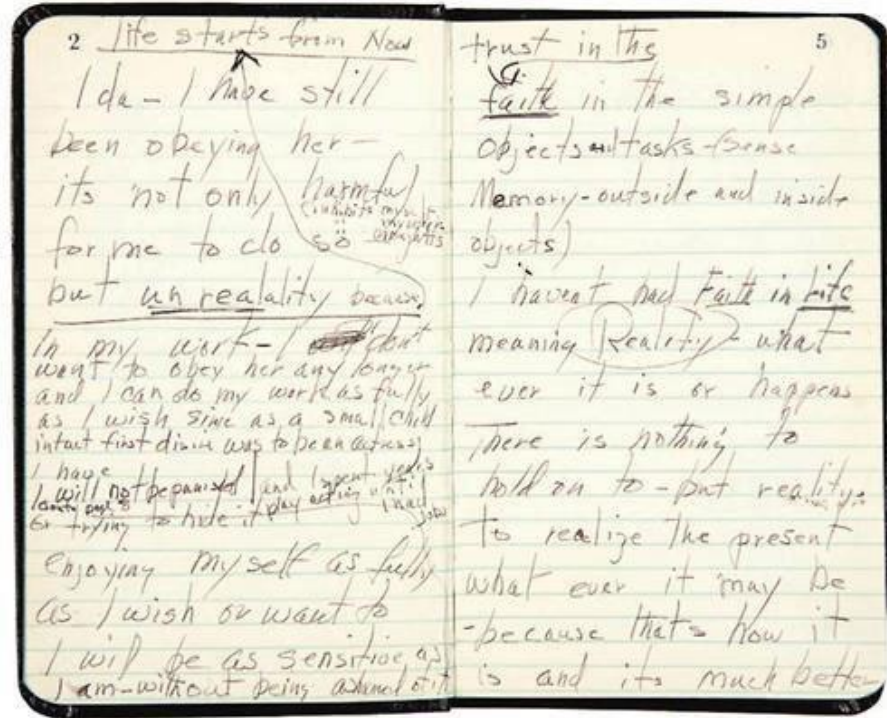 2
life starts from Now
Ida - I have still
been obeying her -
its not only harmful
for me to do so
(inhibits myself
my work
but unrealality because
In my work - I don't
want to obey her any longer
and I can do my work as fully
as I wish since as a small child
intact first disire was to be an actress
I have
I will not be punished and I spent years
or trying to hide it play acting until I had
jobs
enjoying myself as fully
as I wish or want to
I will be as sensitive as
I am - without being ashamed of it
5
trust in the
faith in the simple
objects and tasks - (Sense
Memory - outside and inside
objects)
I havent had Faith in Life
meaning Reality - what
ever it is or happens
There is nothing to
hold on to - but reality
to realize the present
what ever it may be
- because thats how it
is and its much better